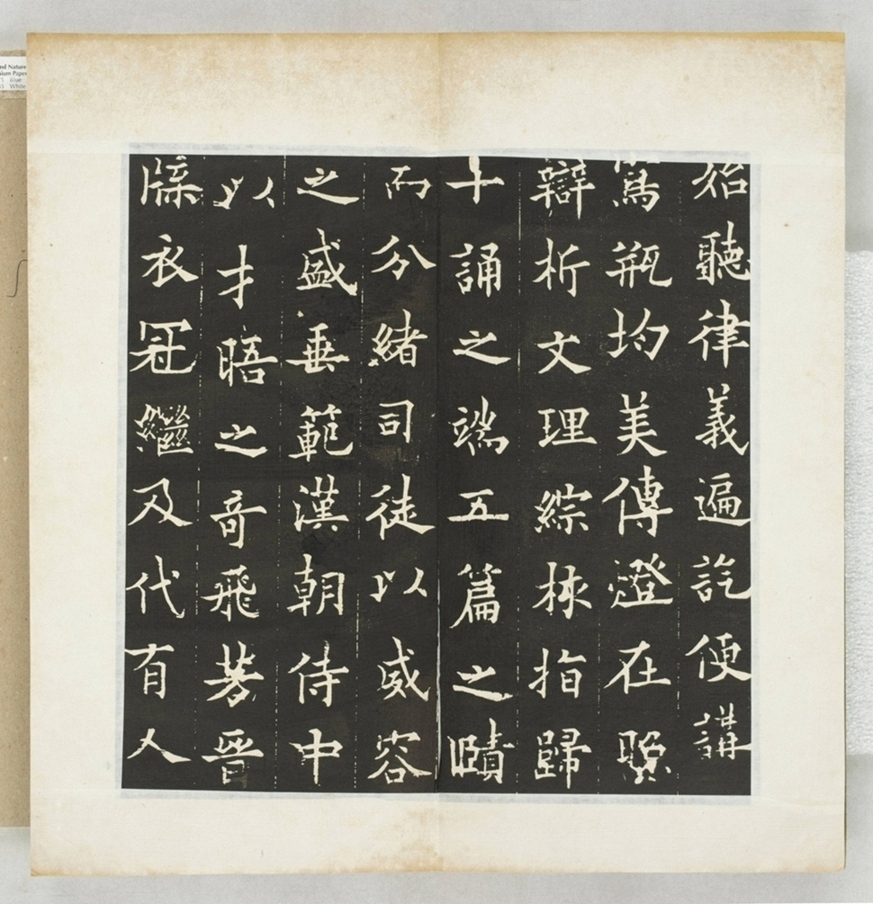 始聽律義遍訖便講
寫瓶均美傳燈在照
辯析文理綜核指歸
十誦之端五篇之賾
而分緒司徒以威容
之盛垂範漢朝侍中
以才晤之奇飛芳晉
牒衣冠繼及代有人
Nature
Blue
White